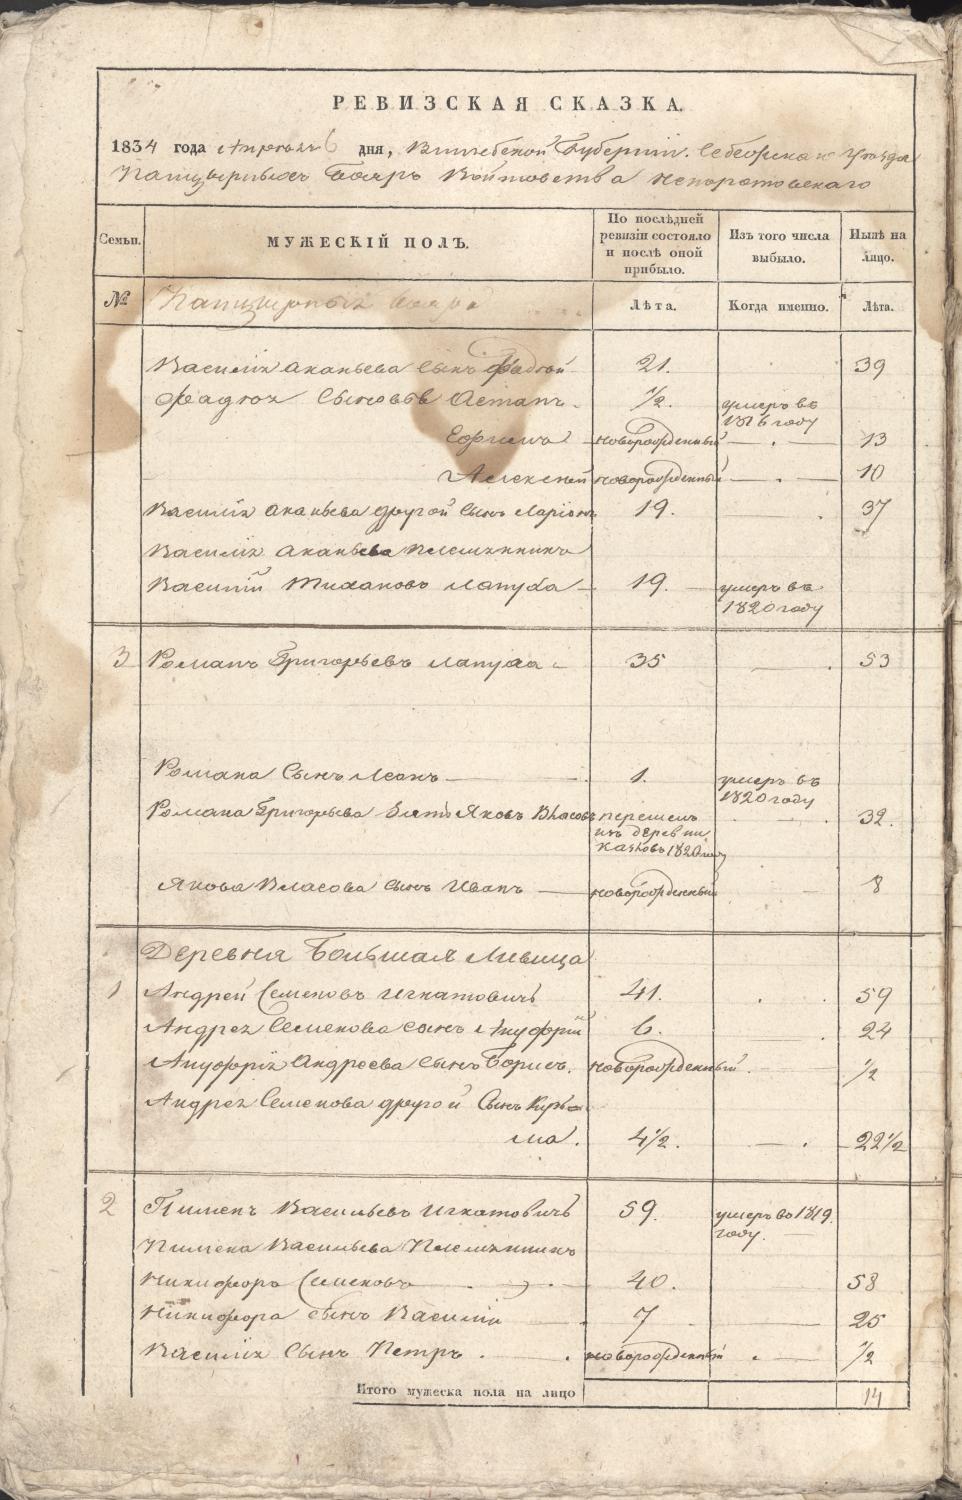 РЕВИЗСКАЯ СКАЗКА.
1834 года Апреля 6 дня, Витебской Губернии. Себежскаго Уезда
Панцырныхъ Бояръ Войтовства Непоротовскаго
Семьи. МУЖЕСКІЙ ПОЛЪ. По послѣдней ревизіи состояло и послѣ оной прибыло. Изъ того числа выбыло. Нынѣ на лицо.
№ Панцырныхъ бояръ Лѣта. Когда именно. Лѣта.
Василія Ананьева Сынъ Фадей 21. 39
Фадея Сыновья Астапъ 1/2. умеръ въ 1816 году
Ефимъ новорожденный 13
Алексей новорожденный 10
Василія Ананьева другой Сынъ Ларіонъ 19. 37
Василія Ананьева племянникъ
Василій Тихановъ Лапуха 19. умеръ въ 1820 году
3 Романъ Григорьевъ Лапуха 35 53
Романа Сынъ Леонъ 1. умеръ въ 1820 году
Романа Григорьева Зять Яковъ Власовъ перешелъ изъ деревни 1820 году 32.
Якова Власова сынъ Иванъ новорожденный 8
Деревня Большая Ливица
1 Андрей Семеновъ Игнатовичъ 41. 59
Андрея Семенова сынъ Ануфрій 6. 24
Ануфрія Андреева Сынъ Борисъ. новорожденный. 1/2
Андрея Семенова другой Сынъ Кузь-
ма. 4 1/2. 22 1/2
2 Пименъ Васильевъ Игнатовичъ 59. умеръ во 1819. году.
Пимена Васильева Племянникъ
Никифоръ Семеновъ 40. 58
Никифора сынъ Василій 7 25
Василія Сынъ Петръ. новорожденный 1/2
Итого мужеска пола на лицо 14